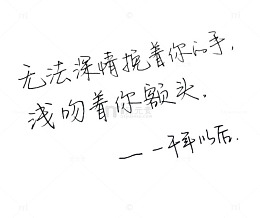 无法深情挽着你的手，
浅吻着你额头。
——一千年以后。